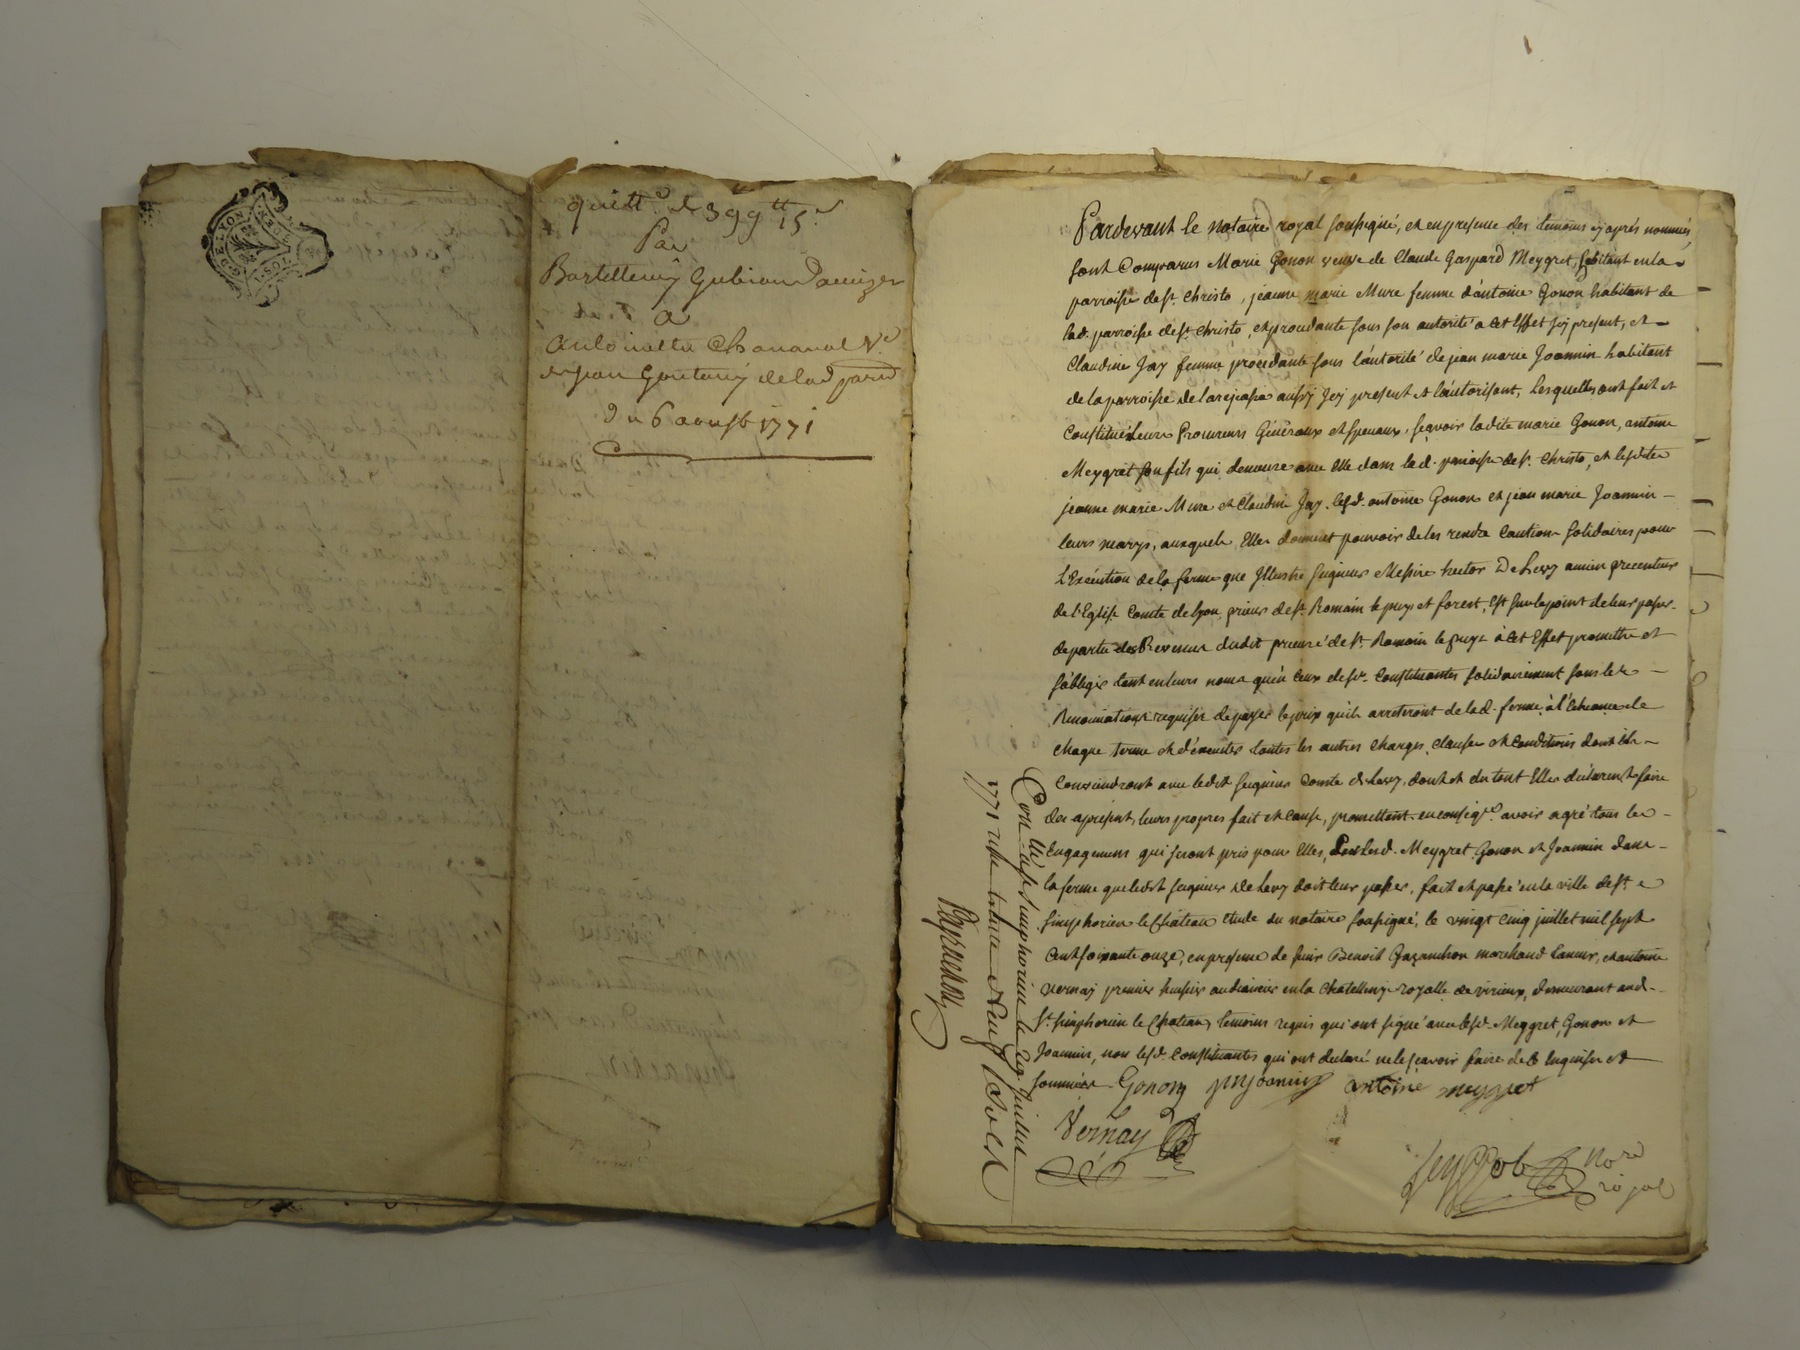 DE LYON
quitt.ce de 399tt 15s
Par
Bartellemy Gubian Davaizes
a
Antoinette Chananal Ve
de jean Goutany de lad parse
du 6 aoust 1771
Pardevant le notaire royal soussigné, et en presence des temoins cy après nommés
sont Comparus Marie Gonon veuve de Claude Gaspard Meygret, habitant en la
parroisse de st. Christo, jeanne marie Mure femme d'antoine Gonon habitant de
lad. parroisse de st. Christo, et procedante sous son autorité a cet Effet jcy present, et
Claudine Jay femme procedante sous l'autorité de jean marie Joannin habitant
de la parroisse de aussy jcy present et l'autorisant, Lesquelles ont fait et
Constitué leurs Procureurs Généraux et speciaux, sçavoir ladite marie Gonon, antoine
Meygret son fils qui demeure avec Elle dans lad. parroisse de st. Christo, et lesdites
jeanne marie Mure et Claudine Jay, lesd. antoine Gonon et jean marie Joannin
leurs marys, auxquels Elles donnent pouvoir de les rendre Caution Solidaires pour
L'Exécution de la ferme que Illustre Seigneur Messire hector De Levy ancien precenteur
de l'Eglise Comte de lyon, prieur de st. Romain le puys et forest, Est sur le point de leur passer
de partie des Revenus dudit prieuré de st. Romain le puys à cet Effet promettre et
s'obliger tant en leurs noms qu'en Ceux desd. Constituantes solidairement sous les
Renonciations requises de payer le prix qu'ils arreteront de lad. ferme à l'Echeance de
chaque terme et d'éxecuter toutes les autres Charges, Clauses et Conditions dont ils
Conviendront avec ledit Seigneur Comte de Levy, dont et du tout Elles declarent faire
des apresent, leurs propres fait et Cause, promettent en conseqce. avoir agré tous les
Engagemens qui seront pris pour Elles, Par Lesd. Meygret, Gonon et Joannin dans
la ferme que ledit seigneur de Levy doit leur passer. fait et passé en la ville de st.
simphorien le Château Etude du notaire soussigné, le vingt cinq juillet mil sept
Cent soixante onze, en presence de sieur Benoit Gazanchon marchand taneur, et antoine
Vernay premier huissier audiancier en la Chatellenie royalle de virieux, demeurant aud.
st. simphorien le Chateau, temoins requis qui ont signé avec lesd. Meygret, Gonon et
Joannin, non lesd. Constituantes qui ont declaré ne le sçavoir faire de ce Enquises et
sommées Gonon jmjoanin antoine meygret
Vernay
nore
royal
Con.lé a st simphorien le 29 juillet
1771 reçu treize Neuf sols